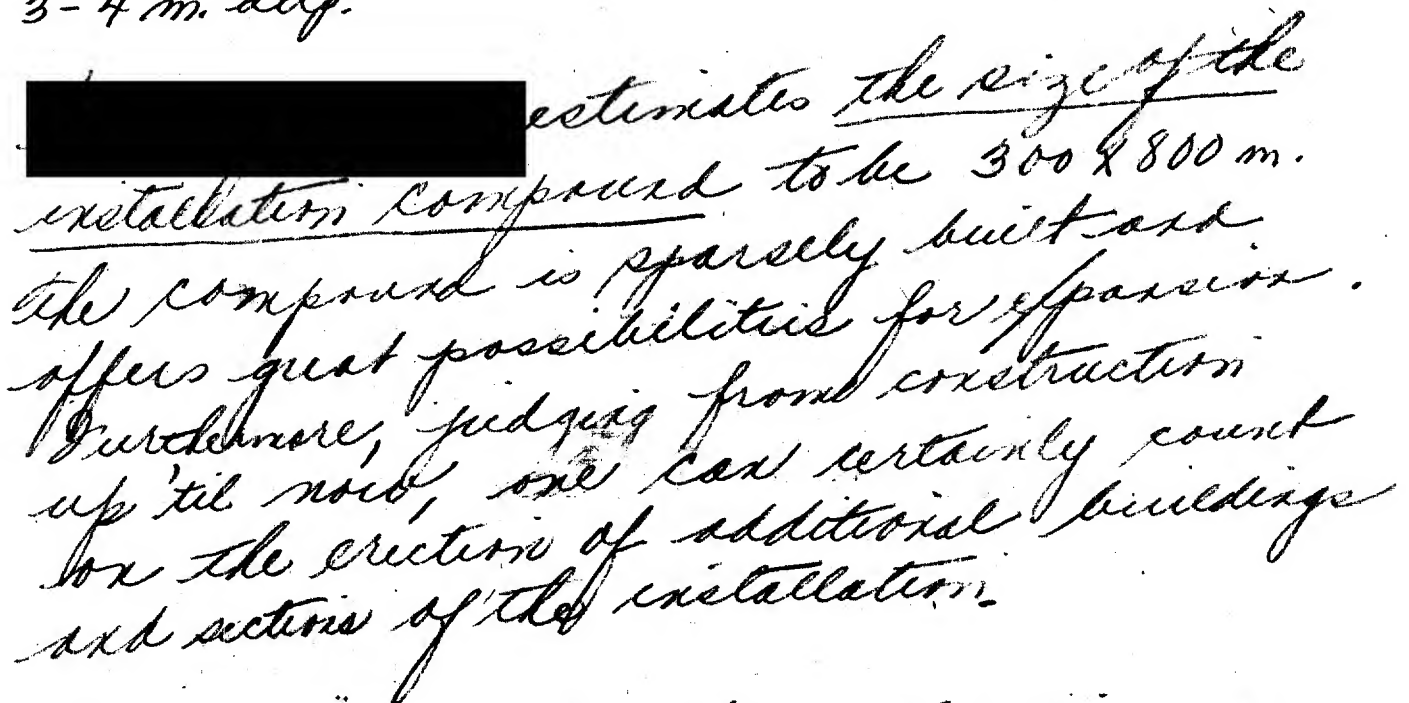 3-4 m. deep.
estimates the size of the
installation compound to be 300 x 800 m.
The compound is sparsely built and
offers great possibilities for expansion.
Furthermore, judging from construction
up 'til now, one can certainly count
on the erection of additional buildings
and sections of the installation.